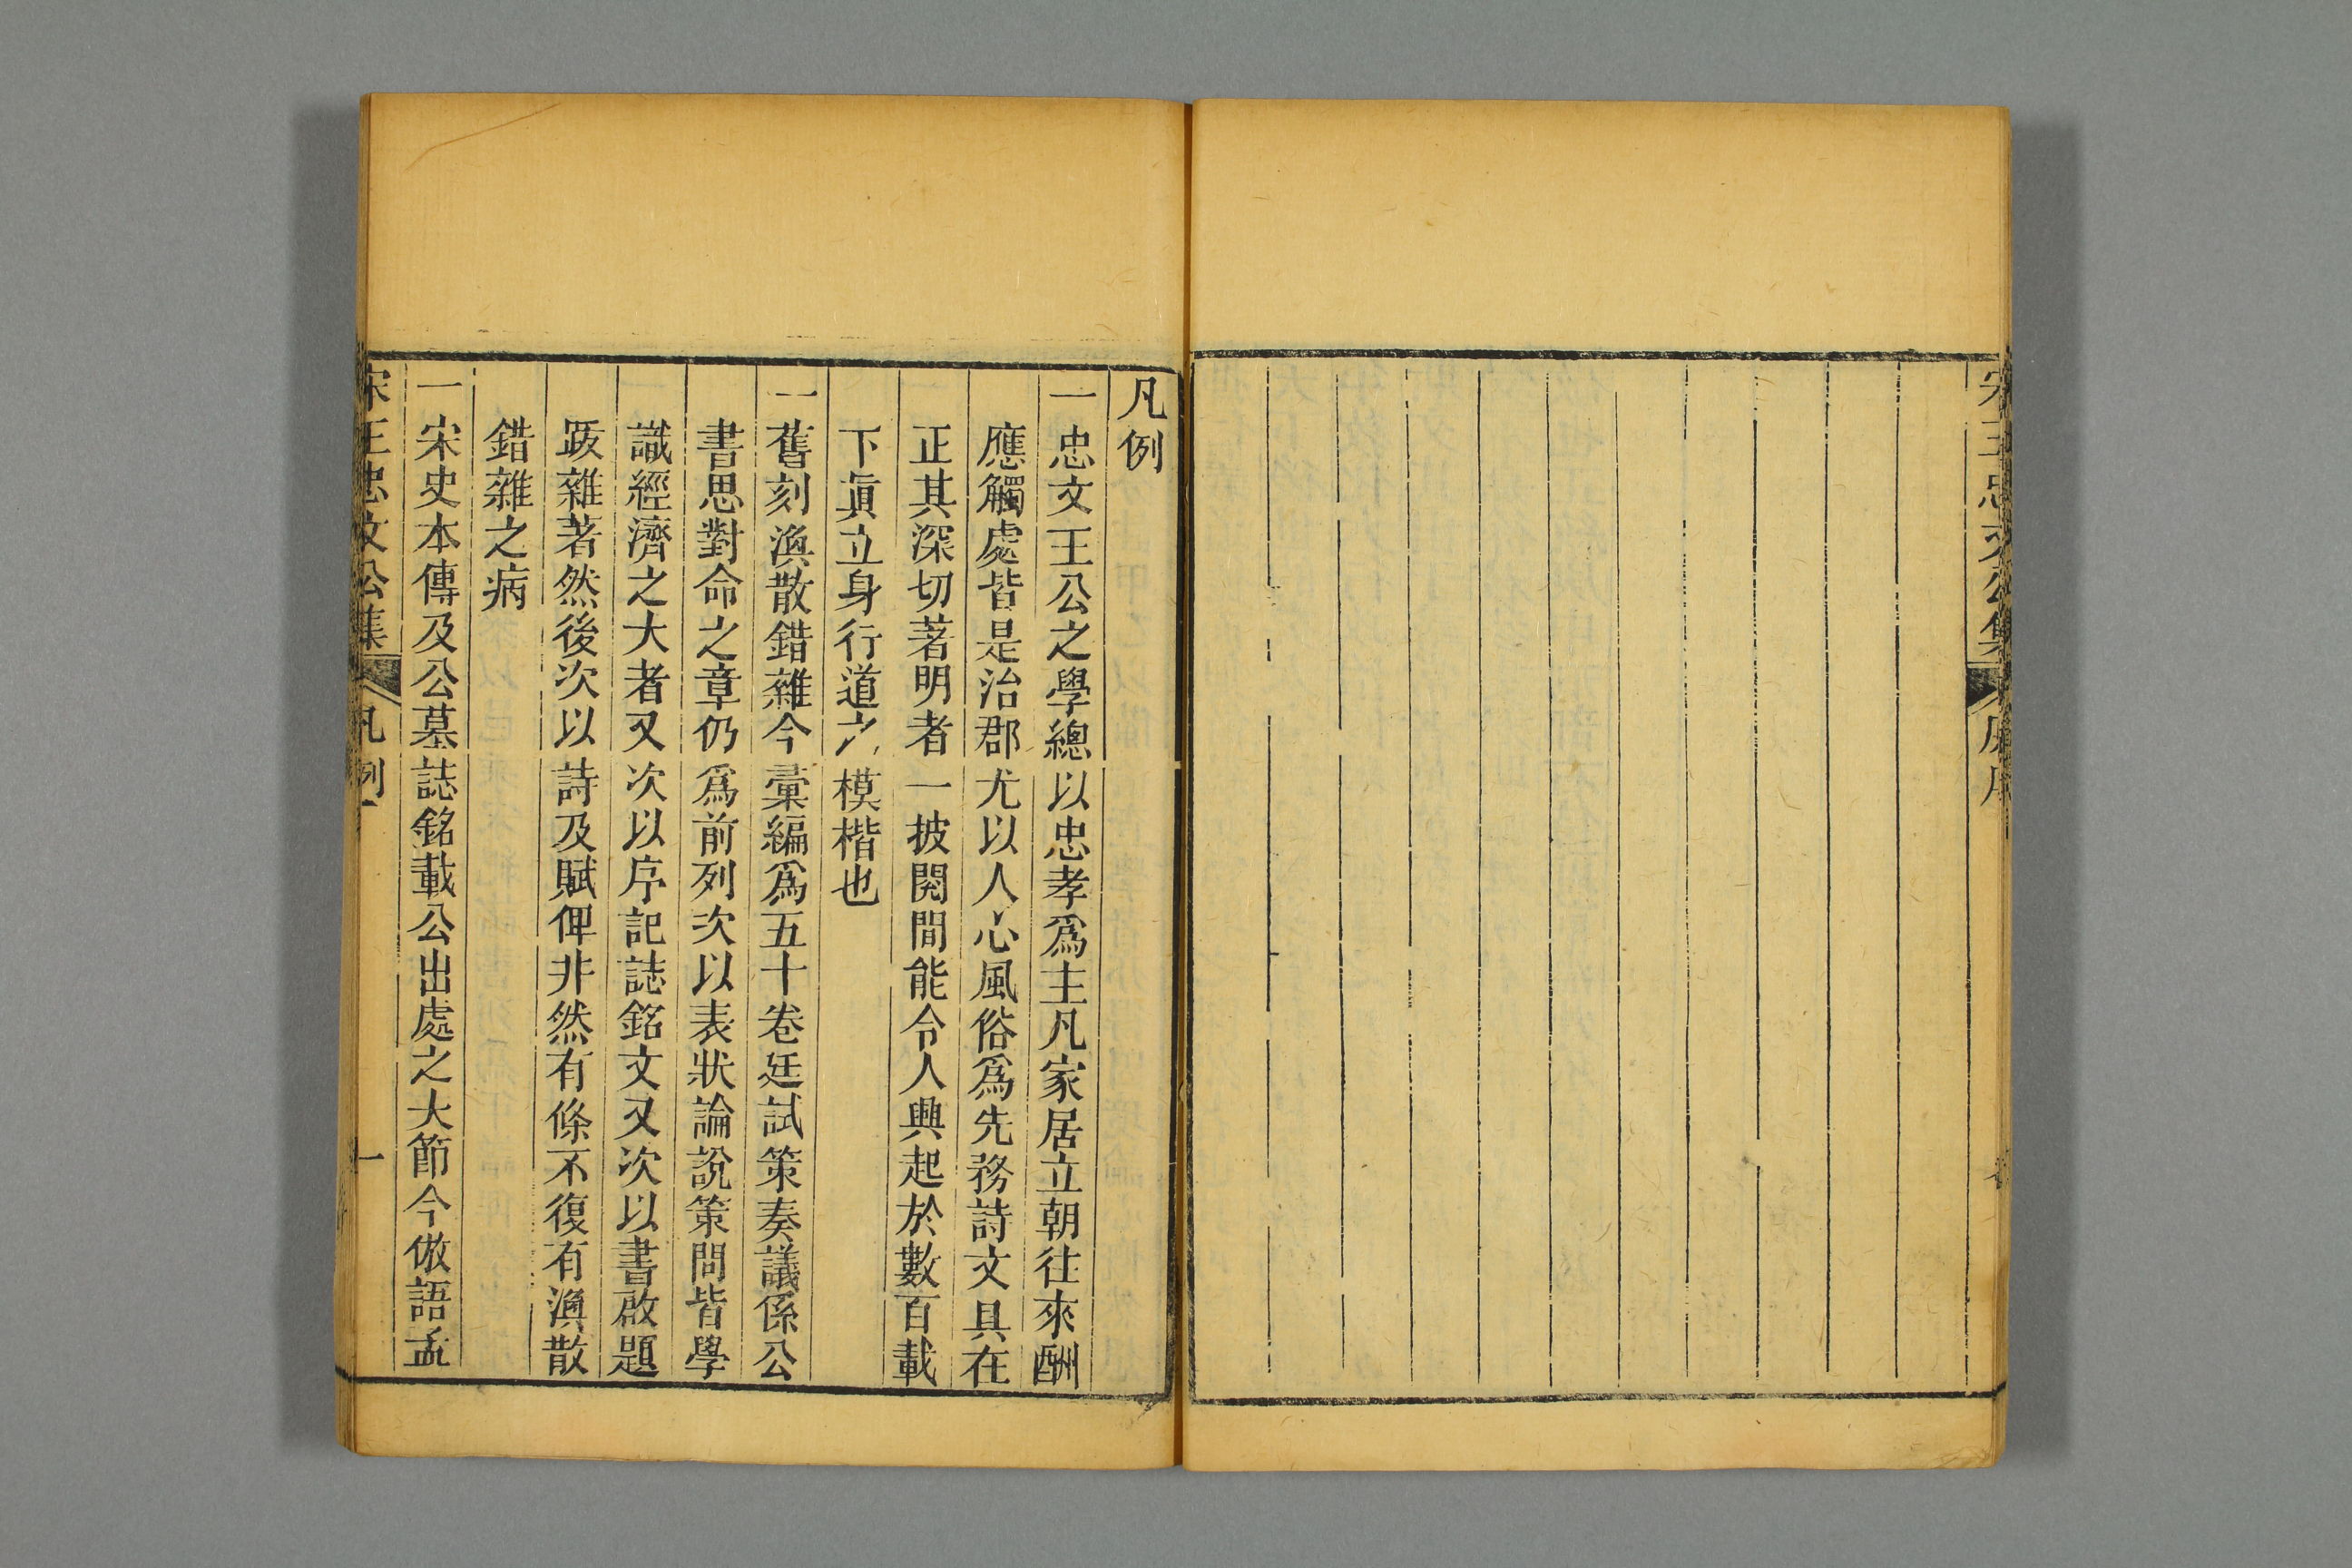 宋王忠文公集
凡例
一忠文王公之學總以忠孝爲主凡家居立朝往來酬
應觸處皆是治郡尤以人心風俗爲先務詩文具在
正其深切著明者一披閱間能令人興起於數百載
下眞立身行道之模楷也
一舊刻渙散錯雜今彙編爲五十卷廷試策奏議係公
書思對命之章仍爲前列次以表狀論說策問皆學
識經濟之大者又次以序記誌銘文又次以書啟題
跋雜著然後次以詩及賦俾非然有條不復有渙散
錯雜之病
一宋史本傳及公墓誌銘載公出處之大節今倣語孟
宋王忠文公集 凡例 一